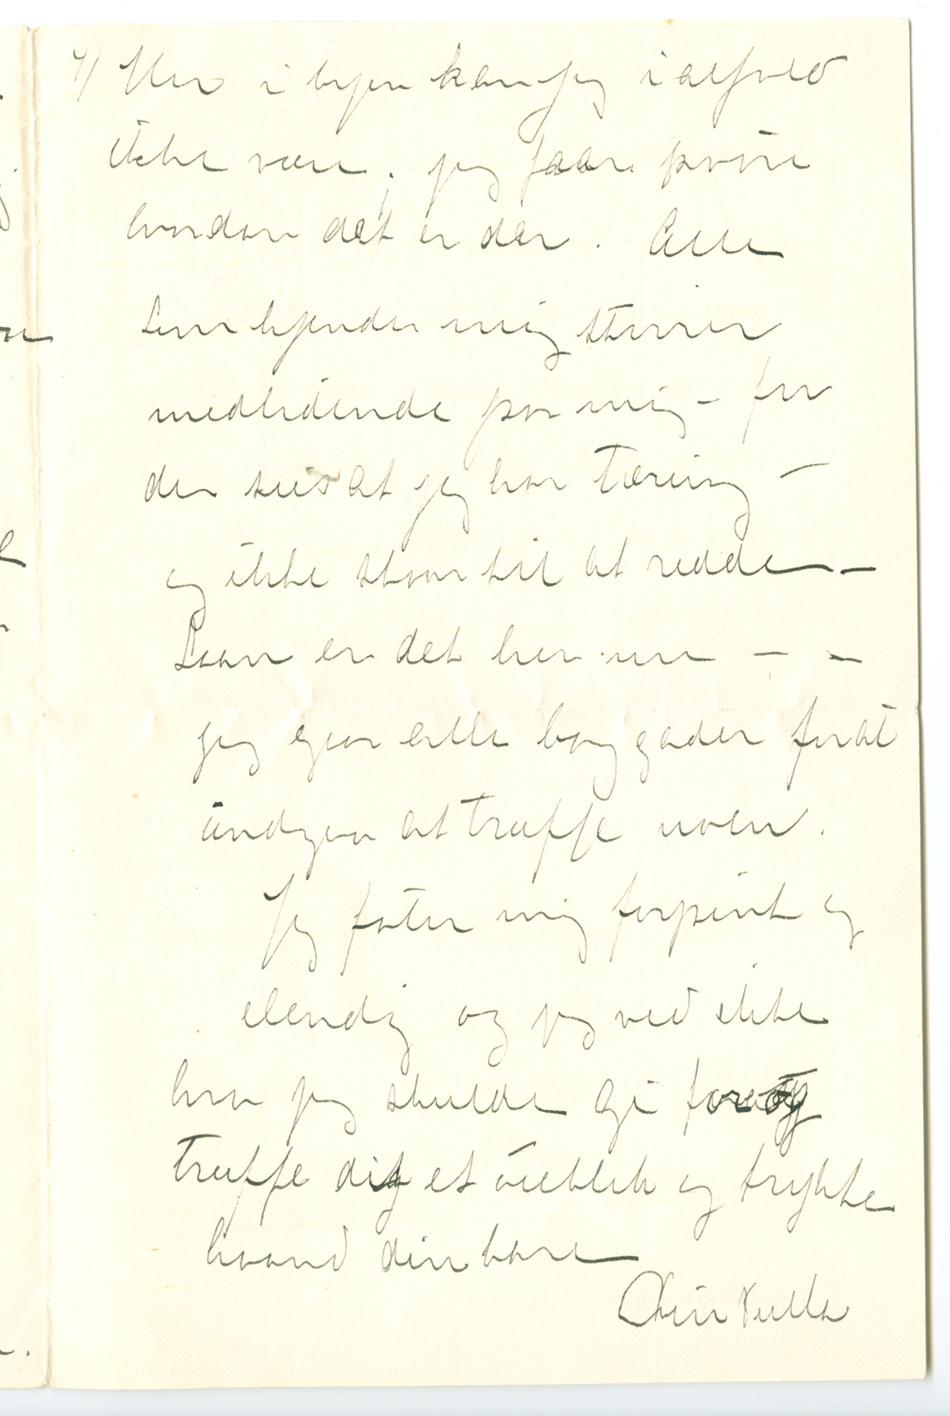 4) Her i byen kan jeg ialfald
ikke være, jeg faar prøve
hvordan det er der. Alle
som kjender mig stirrer
medlidende paa mig – for
der siees at jeg har Tæring –
og ikke staar til at redde –
Saan er det her nu – –
jeg gaar alle baggader forat
undgaa at træffe noen.
Jeg føler mig forpint og
elendig og jeg ved ikke
hva jeg skulde gi for at
træffe dig et øieblik og trykke
haand din bare
Din Tulla